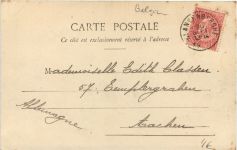 Belgr
CARTE POSTALE
Ce côté est exclusivement réservé à l'adresse
Mademoiselle Edith Classen
57. Templergraben
Allemagne
Aachen